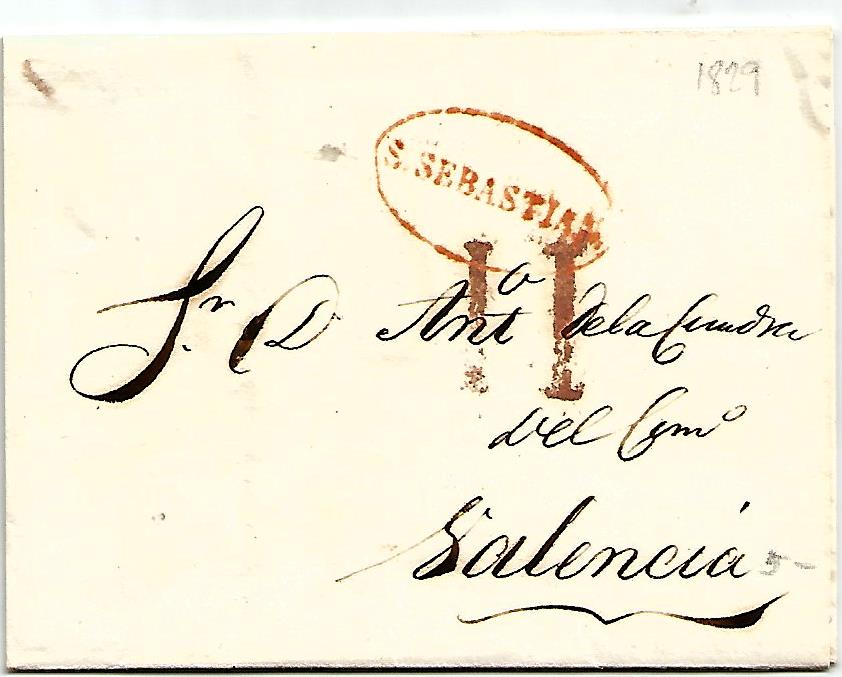 1829
S. SEBASTIAN
11
Sr. D. Anto de la Cuadra
del Commo
Valencia
5-